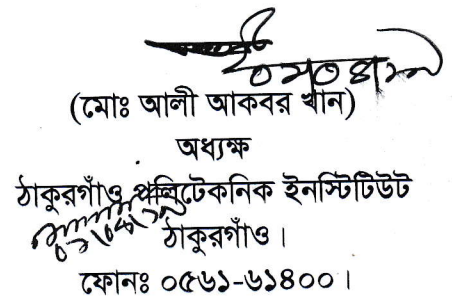 (মোঃ আলী আকবর খান)
অধ্যক্ষ
ঠাকুরগাঁও পলিটেকনিক ইনস্টিটিউট
ঠাকুরগাঁও।
ফোনঃ ০৫৬১-৬১৪০০।